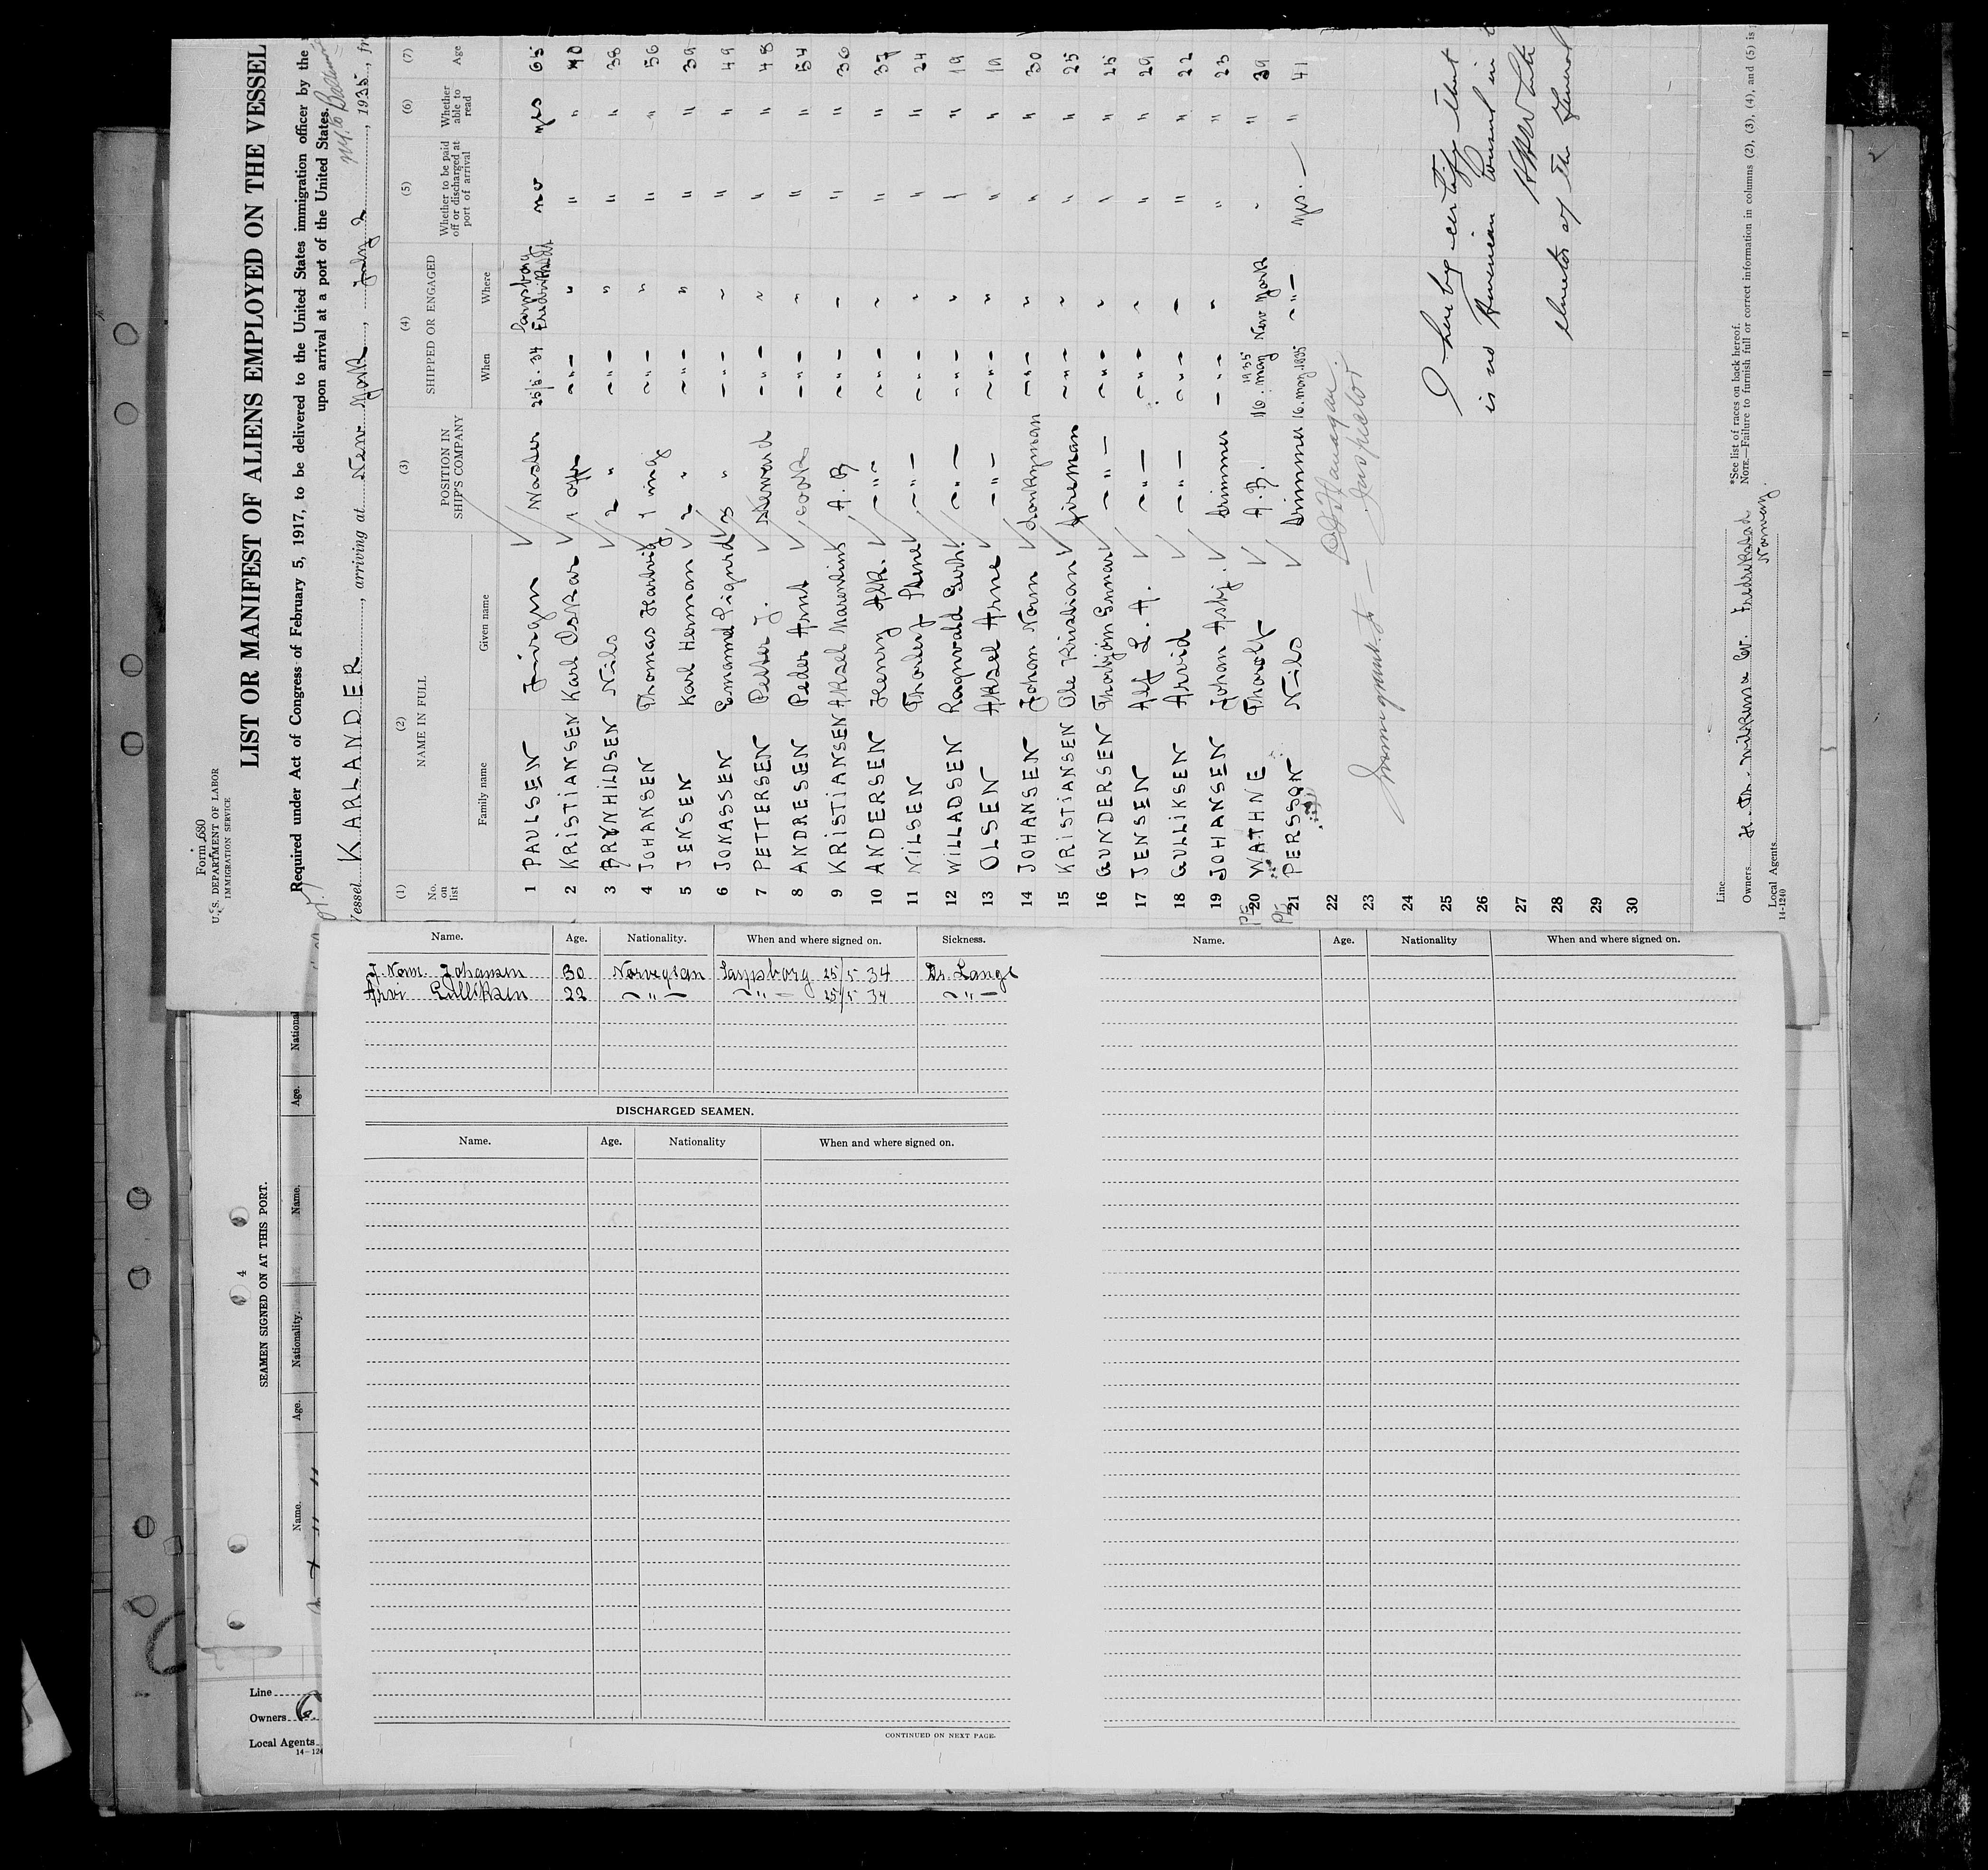 Form 680
U. S. DEPARTMENT OF LABOR
IMMIGRATION SERVICE
LIST OR MANIFEST OF ALIENS EMPLOYED ON THE VESSEL
Required under Act of Congress of February 5, 1917, to be delivered to the United States immigration officer by the
upon arrival at a port of the United States.
Vessel KARLANDER, arriving at New York, 1935, fr
(1) (2) (3) (4) (5) (6) (7)
No. on list NAME IN FULL POSITION IN SHIP'S COMPANY SHIPPED OR ENGAGED Whether to be paid off or discharged at port of arrival Whether able to read Age
Family name Given name When Where
1 PAULSEN Jörgen Master 25/5-34 Sarpsborg Fredrikstad no yes 65
2 KRISTIANSEN Karl Oskar 1 offr -"- " " " 40
3 BRYNHILDSEN Nils 2 " -"- " " " 38
4 JOHANSEN Thomas Hartvig 1 ing -"- " " " 56
5 JENSEN Karl Herman 2 " -"- " " " 39
6 JONASSEN Emanuel Sigurd 3 " -"- " " " 49
7 PETTERSEN Petter J. Steward -"- " " " 48
8 ANDRESEN Peder Arnt cook -"- " " " 54
9 KRISTIANSEN Aksel Marentius A.B -"- " " " 36
10 ANDERSEN Henry Alk. -"- -"- " " " 37
11 NILSEN Thorleif Stene -"- -"- " " " 24
12 WILLADSEN Ragnvald Gerh. -"- -"- " " " 19
13 OLSEN Aksel Arne -"- -"- " " " 19
14 JOHANSEN Johan Norm Donkeyman -"- " " " 30
15 KRISTIANSEN Ole Kristian Fireman -"- " " " 25
16 GUNDERSEN Thorbjörn Gunnar -"- -"- " " " 25
17 JENSEN Alf L. A. -"- -"- " " " 29
18 GULLIKSEN Arvid -"- -"- " " " 22
19 JOHANSEN Johan Asbj. trimmer -"- " " " 23
20 WATHNE Tharolf A.B. 16. may 1935 New York " " 39
21 PERSSON Nils trimmer 16. may 1935 -"- yes. - " 41
22
23
24
25
26
27
28
29
30
Immigrant
Inspector
I hereby certify that
is no American Consul in
of the General
Line
Owners Fredrikstad
Norway.
Local Agents
14-1240
*See list of races on back hereof.
NOTE.—Failure to furnish full or correct information in columns (2), (3), (4), and (5) is
Name. Age. Nationality. When and where signed on. Sickness.
J. Norm. Johansen 30 Norvegian Sarpsborg 25/5 34 Dr. Lange
Arvi Gulliksen 22 -"- -"- 25/5 34 -"-
DISCHARGED SEAMEN.
Name. Age. Nationality When and where signed on.
CONTINUED ON NEXT PAGE.
Name. Age. Nationality When and where signed on.
4
SEAMEN SIGNED ON AT THIS PORT.
Name. Age. Nationality. Name. Age. National
Line
Owners
Local Agents
14-124